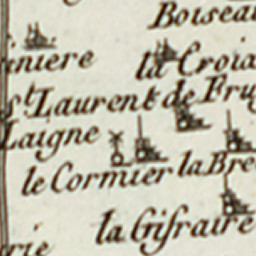 Boiseau
iniere
la Croix
St. Laurent de Fru
Laigne
le Cormier
la Bre
la Gifraire
rie